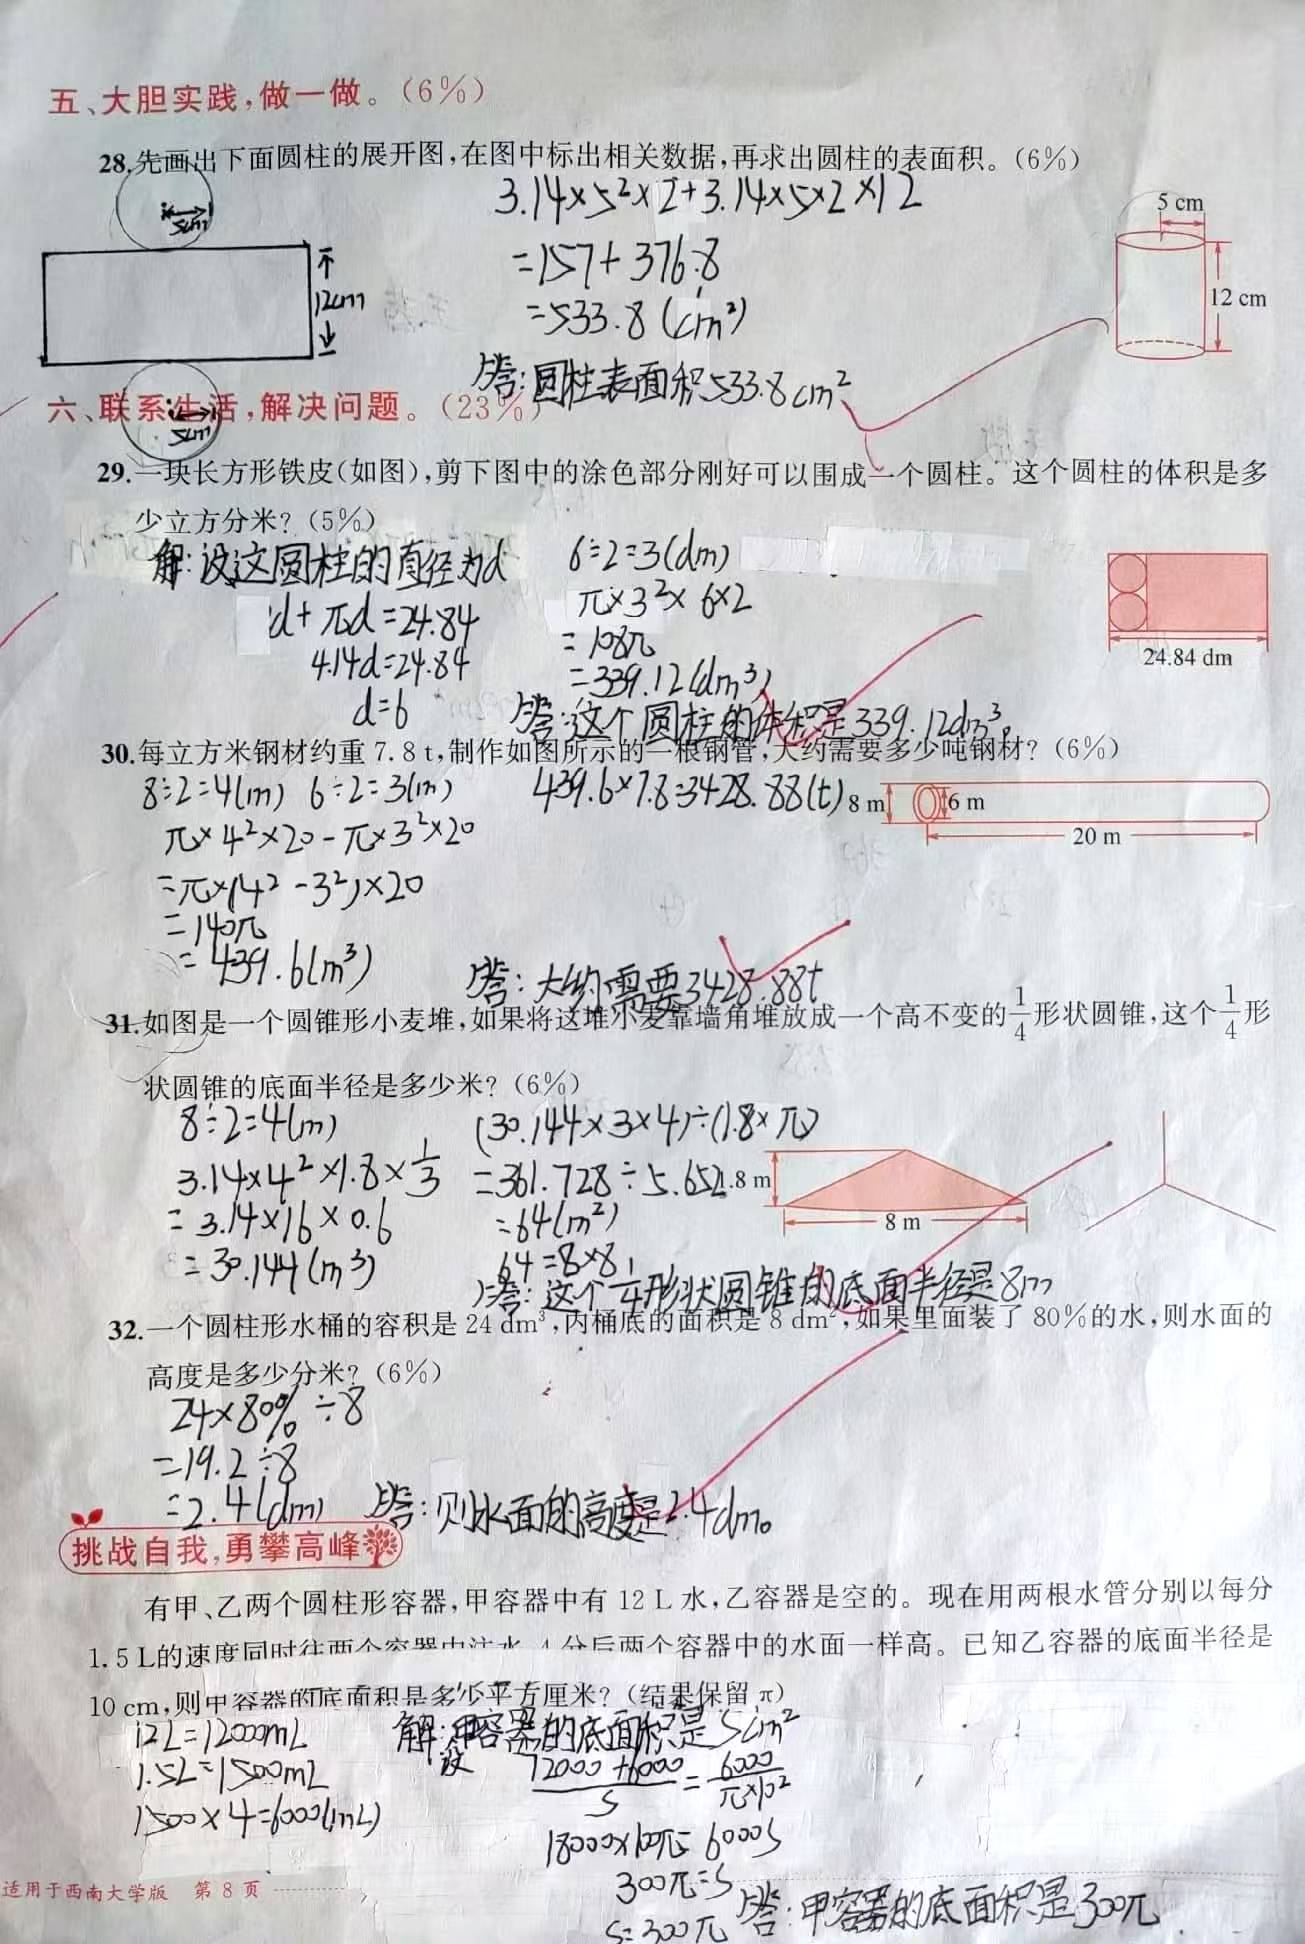 五、大胆实践,做一做。(6%)
28.先画出下面圆柱的展开图,在图中标出相关数据,再求出圆柱的表面积。(6%)
5cm
12cm
5cm
3.14×5²×2+3.14×5×2×12
=157+376.8
=533.8(cm²)
答:圆柱表面积533.8cm²
5 cm
12 cm
六、联系生活,解决问题。(23%)
29.一块长方形铁皮(如图),剪下图中的涂色部分刚好可以围成一个圆柱。这个圆柱的体积是多
少立方分米?(5%)
解:设这圆柱的直径为d
d+πd=24.84
4.14d=24.84
d=6
6÷2=3(dm)
π×3²×6×2
=108π
=339.12(dm³)
答:这个圆柱的体积是339.12dm³。
24.84 dm
30.每立方米钢材约重7.8 t,制作如图所示的一根钢管,大约需要多少吨钢材?(6%)
8÷2=4(m) 6÷2=3(m)
π×4²×20-π×3²×20
=π×(4²-3²)×20
=140π
=439.6(m³)
439.6×7.8=3428.88(t)
答:大约需要3428.88t
8 m
6 m
20 m
31.如图是一个圆锥形小麦堆,如果将这堆小麦靠墙角堆放成一个高不变的1/4形状圆锥,这个1/4形
状圆锥的底面半径是多少米?(6%)
8÷2=4(m)
3.14×4²×1.8×1/3
=3.14×16×0.6
=30.144(m³)
(30.144×3×4)÷(1.8×π)
=361.728÷5.652
=64(m²)
64=8×8
答:这个1/4形状圆锥的底面半径是8m
1.8 m
8 m
32.一个圆柱形水桶的容积是24 dm³,内桶底的面积是8 dm²,如果里面装了80%的水,则水面的
高度是多少分米?(6%)
24×80%÷8
=19.2÷8
=2.4(dm)
答:则水面的高度是2.4dm。
挑战自我,勇攀高峰
有甲、乙两个圆柱形容器,甲容器中有12 L水,乙容器是空的。现在用两根水管分别以每分
1.5 L的速度同时往两个容器中注水,4分后两个容器中的水面一样高。已知乙容器的底面半径是
10 cm,则甲容器的底面积是多少平方厘米?(结果保留π)
12L=12000mL
1.5L=1500mL
1500×4=6000(mL)
解:设甲容器的底面积是Scm²
12000+6000/S=6000/π×10²
18000×100π=6000S
300π=S
S=300π
答:甲容器的底面积是300π
适用于西南大学版 第8页